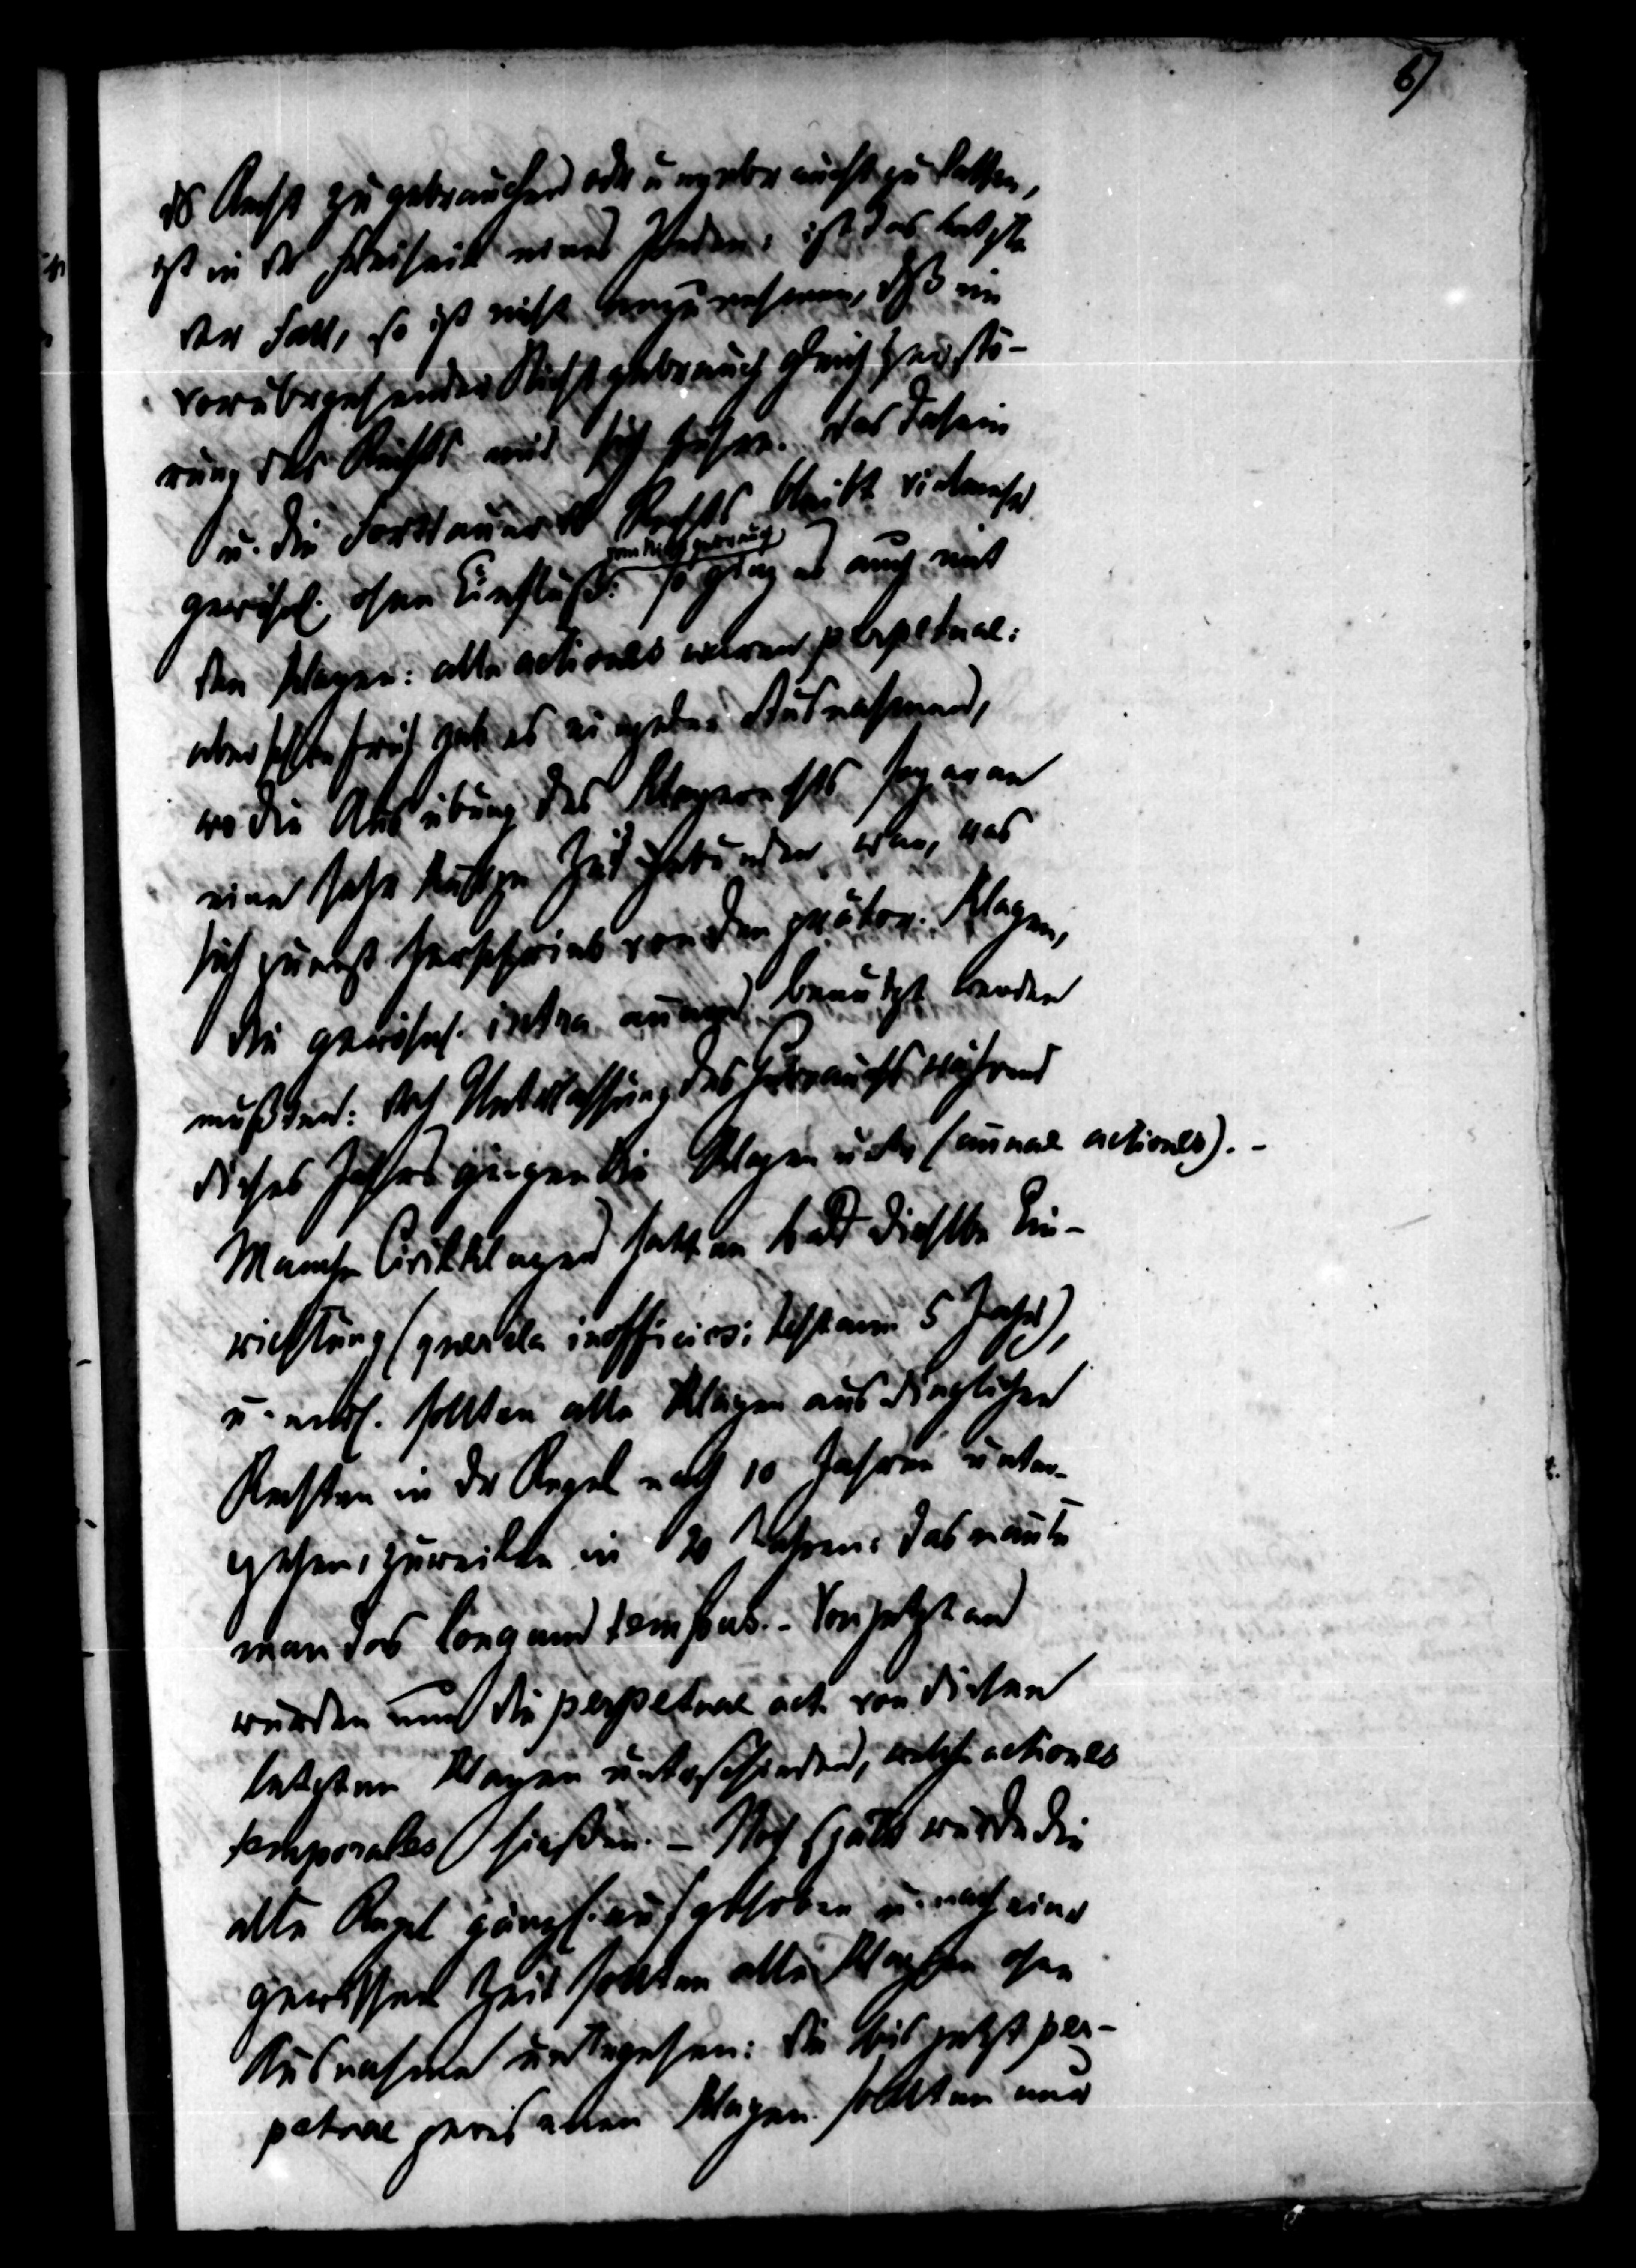 6)
ds Recht zu gebrauchen oder ungebraucht zu lassen,
ist in der Freiheit eines Jeden: ist das letzte
der Fall, so ist nicht anzunehmen, daß ein
vorübergehender Nichtgebrauch gleich Zerstö-
rung des Rechts mit sich führe. Das Dasein
u. die Fortdauer ds Rechts bleibt vielmehr
vom Nichtgebrauch
gewöhnl. ohne Einfluß. So ging es auch mit
den Klagen: alle actiones waren perpetuae:
aber schon früh gab es einzelne Ausnahmen,
wo die Ausübung des Klagerechts sogar an
eine sehr kurze Zeit gebunden war, was
sich zuerst herschrieb von den prätor. Klagen,
die gewöhnl. intra annum benutzt werden
mußten: durch Unterlassung des Gebrauchs während
dieses Jahrs gingen die Klagen unter (annuae actiones). -
Manche Civilklagen hatten bald dieselbe Ein-
richtung (querela inofficiosi testam 5 Jahre),
u. endl. sollten alle Klagen aus dinglichen
Rechten in der Regel nach 10 Jahren unter-
gehen, zuweilen in 20 Jahren: das nannte
man das longum tempus. - Von jetzt an
wurden nun die perpetuae act. von diesen
letzten Klagen unterschieden, welche actiones
temporales hießen. - Noch später wurde die
alte Regel gänzl. aufgehoben u. nach einer
gewissen Zeit sollten alle Klagen ohne
Ausnahme untergehen: die bis jetzt per-
petuae gewesenen Klagen sollten nur